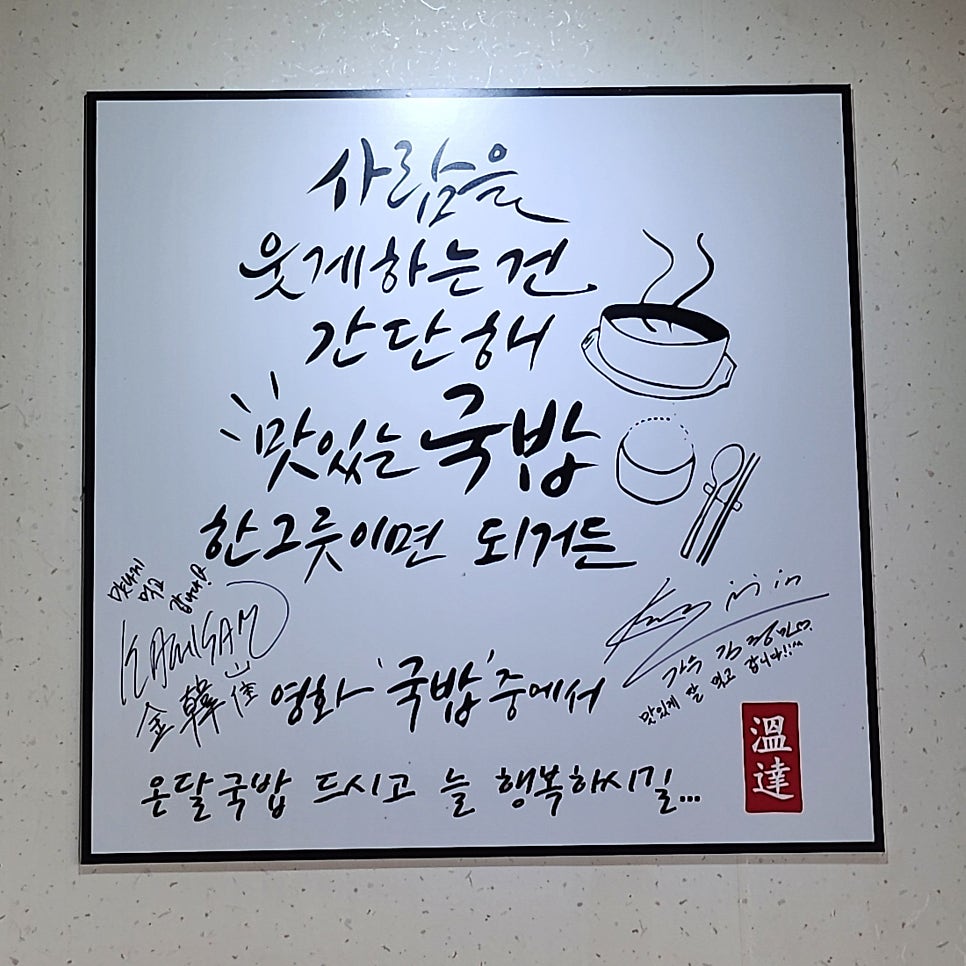 사람을
웃게하는건
간단해
맛있는국밥
한그릇이면 되거든
맛나게
먹고
갑니다!
金韓佳
가수 김정민
맛있게 잘 먹고 갑니다!!^^
영화 '국밥'중에서
온달국밥 드시고 늘 행복하시길...
溫達